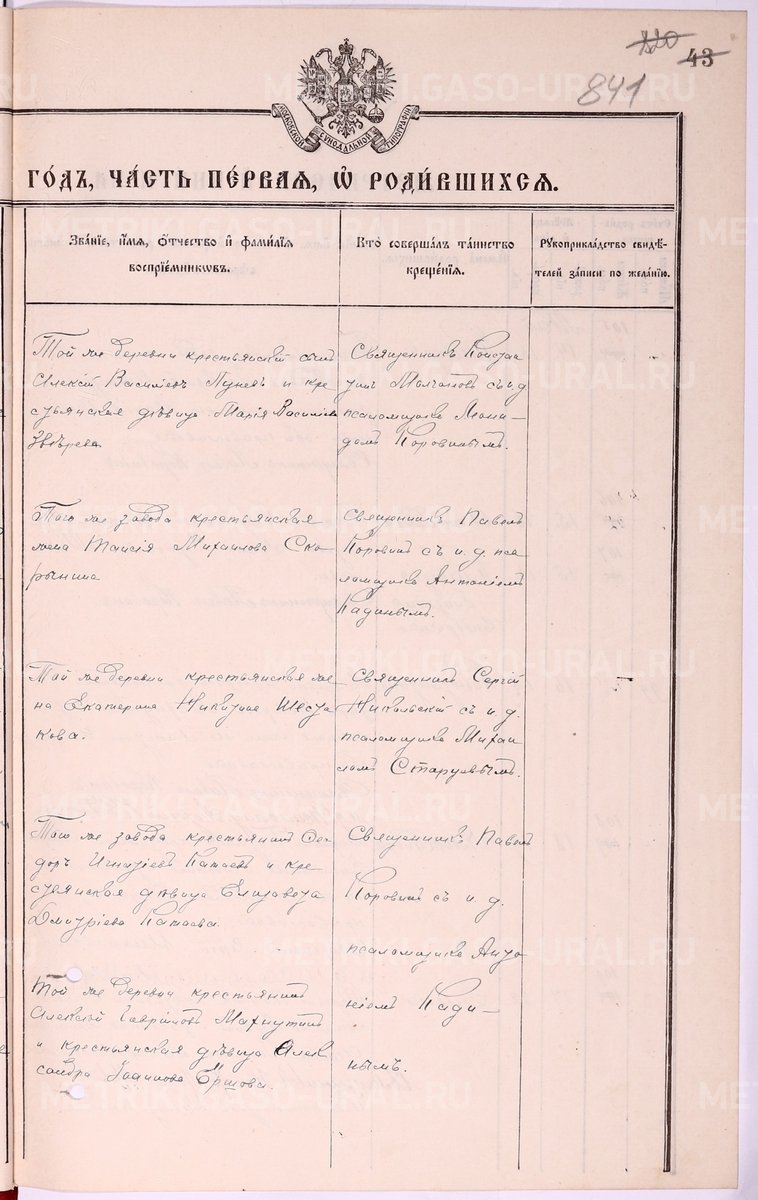 120 43
841
МОСКОВСКОЙ СѴНОДАЛЬНОЙ ТИПОГРАФІИ
ГО́ДЪ, ЧА́СТЬ ПЕ́РВАЯ, Ѡ҆ РОДИ́ВШИХСЯ.
Зва́нїе, и҆́мя, ѻ҆́тчество и҆ фами́лїя
воспрїе́мникѡвъ.
Кто̀ соверша́лъ та́инство
креще́нїя.
Рꙋкоприкла́дство свидѣ́-
телей за́писи по жела́нїю.
Той же деревни крестьянскій сынъ
Алексій Василіевъ и кре
стьянская дѣвица Марія Василіева
Звѣрева
Священникъ Констан
тинъ Молчановъ съ и. д
псаломщика Леони-
домъ Коровинымъ.
Того же завода крестьянская
жена Таисія Михаилова Ско
рынина
Священникъ Павелъ
Коровинъ съ и. д. пса
ломщика Антоніемъ
Кадинымъ.
Той же деревни крестьянская же
на Екатерина Никитина Шеста
кова.
Священникъ Сергій
Никольскій съ и. д.
псаломщика Михаи
ломъ Старцевымъ.
Того же завода крестьянинъ Ѳео
доръ Игнатіевъ Катаевъ и кре
стьянская дѣвица Елизавета
Димитріева Катаева.
Священникъ Павелъ
Коровинъ съ и. д.
псаломщика Анто
ніемъ Кади-
нымъ.
Той же деревни крестьянинъ
Алексій Гавріиловъ Махнутинъ
и крестьянская дѣвица Алек
сандра Іоаннова Ершова.
METRIKI.GASO-URAL.RU